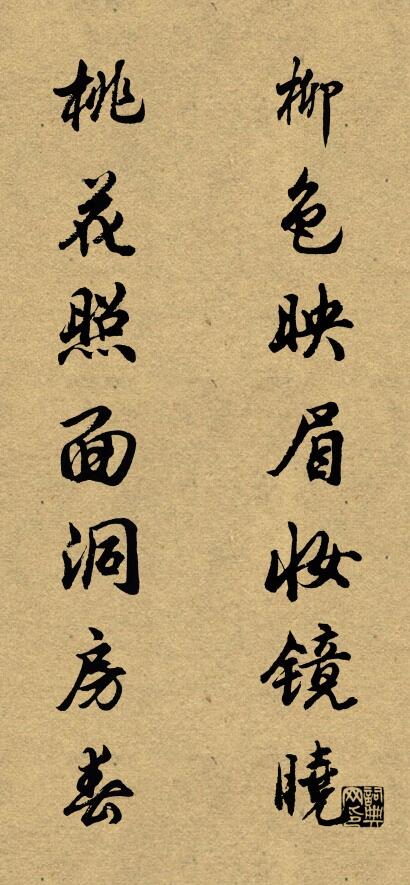 柳色映眉妆镜曉
桃花照面洞房春
詞典网印